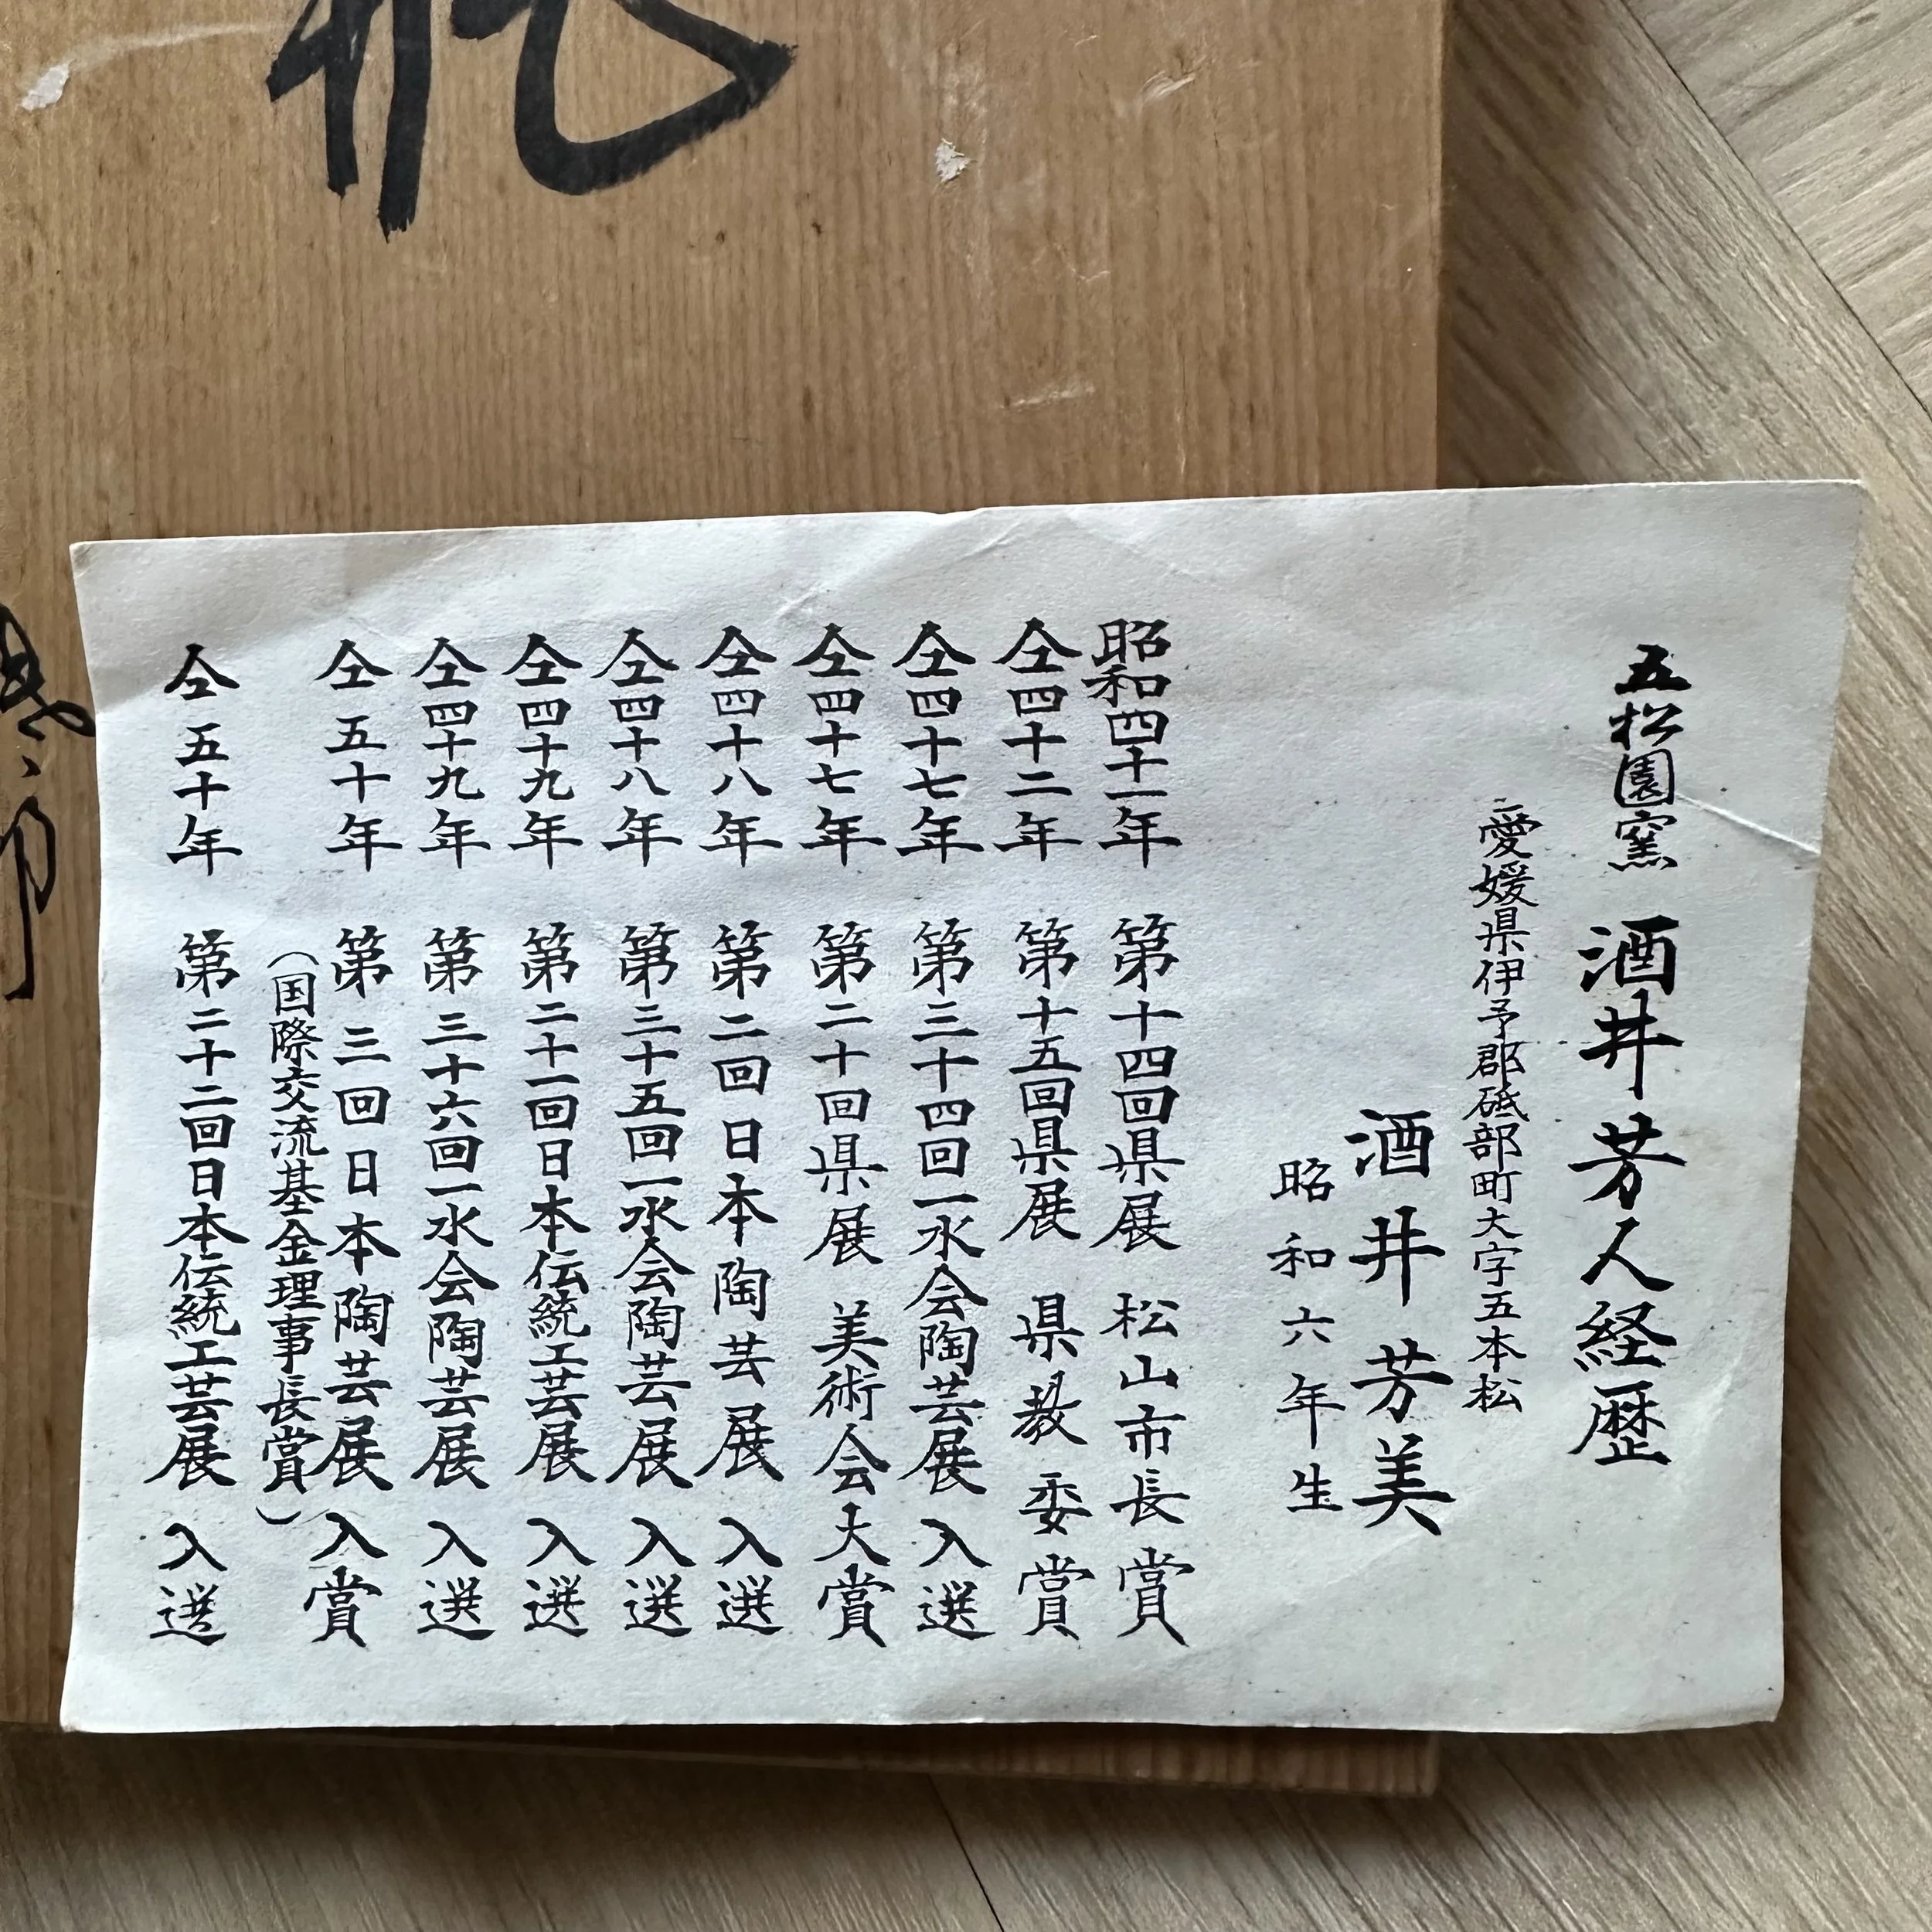 五松園窯 酒井芳人経歴
愛媛県伊予郡砥部町大字五本松
酒井芳美
昭和六年生
昭和四十一年 第十四回県展 松山市長賞
仝四十二年 第十五回県展 県教委賞
仝四十七年 第三十四回一水会陶芸展 入選
仝四十七年 第二十回県展 美術会大賞
仝四十八年 第二回日本陶芸展 入選
仝四十八年 第三十五回一水会陶芸展 入選
仝四十九年 第二十一回日本伝統工芸展 入選
仝四十九年 第三十六回一水会陶芸展 入選
仝五十年 第三回日本陶芸展 入賞
（国際交流基金理事長賞）
仝五十年 第二十二回日本伝統工芸展 入選